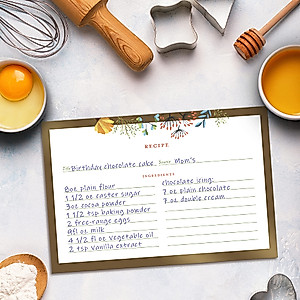 RECIPE
Birthday chocolate cake Mom's
INGREDIENTS
8oz plain flour
1 1/2 oz caster sugar
3oz cocoa powder
1 1/2 tsp baking powder
2 free-range eggs
9fl oz milk
4 1/2 fl oz vegetable oil
2 tsp vanilla extract
chocolate icing:
7 oz plain chocolate
7 oz double cream